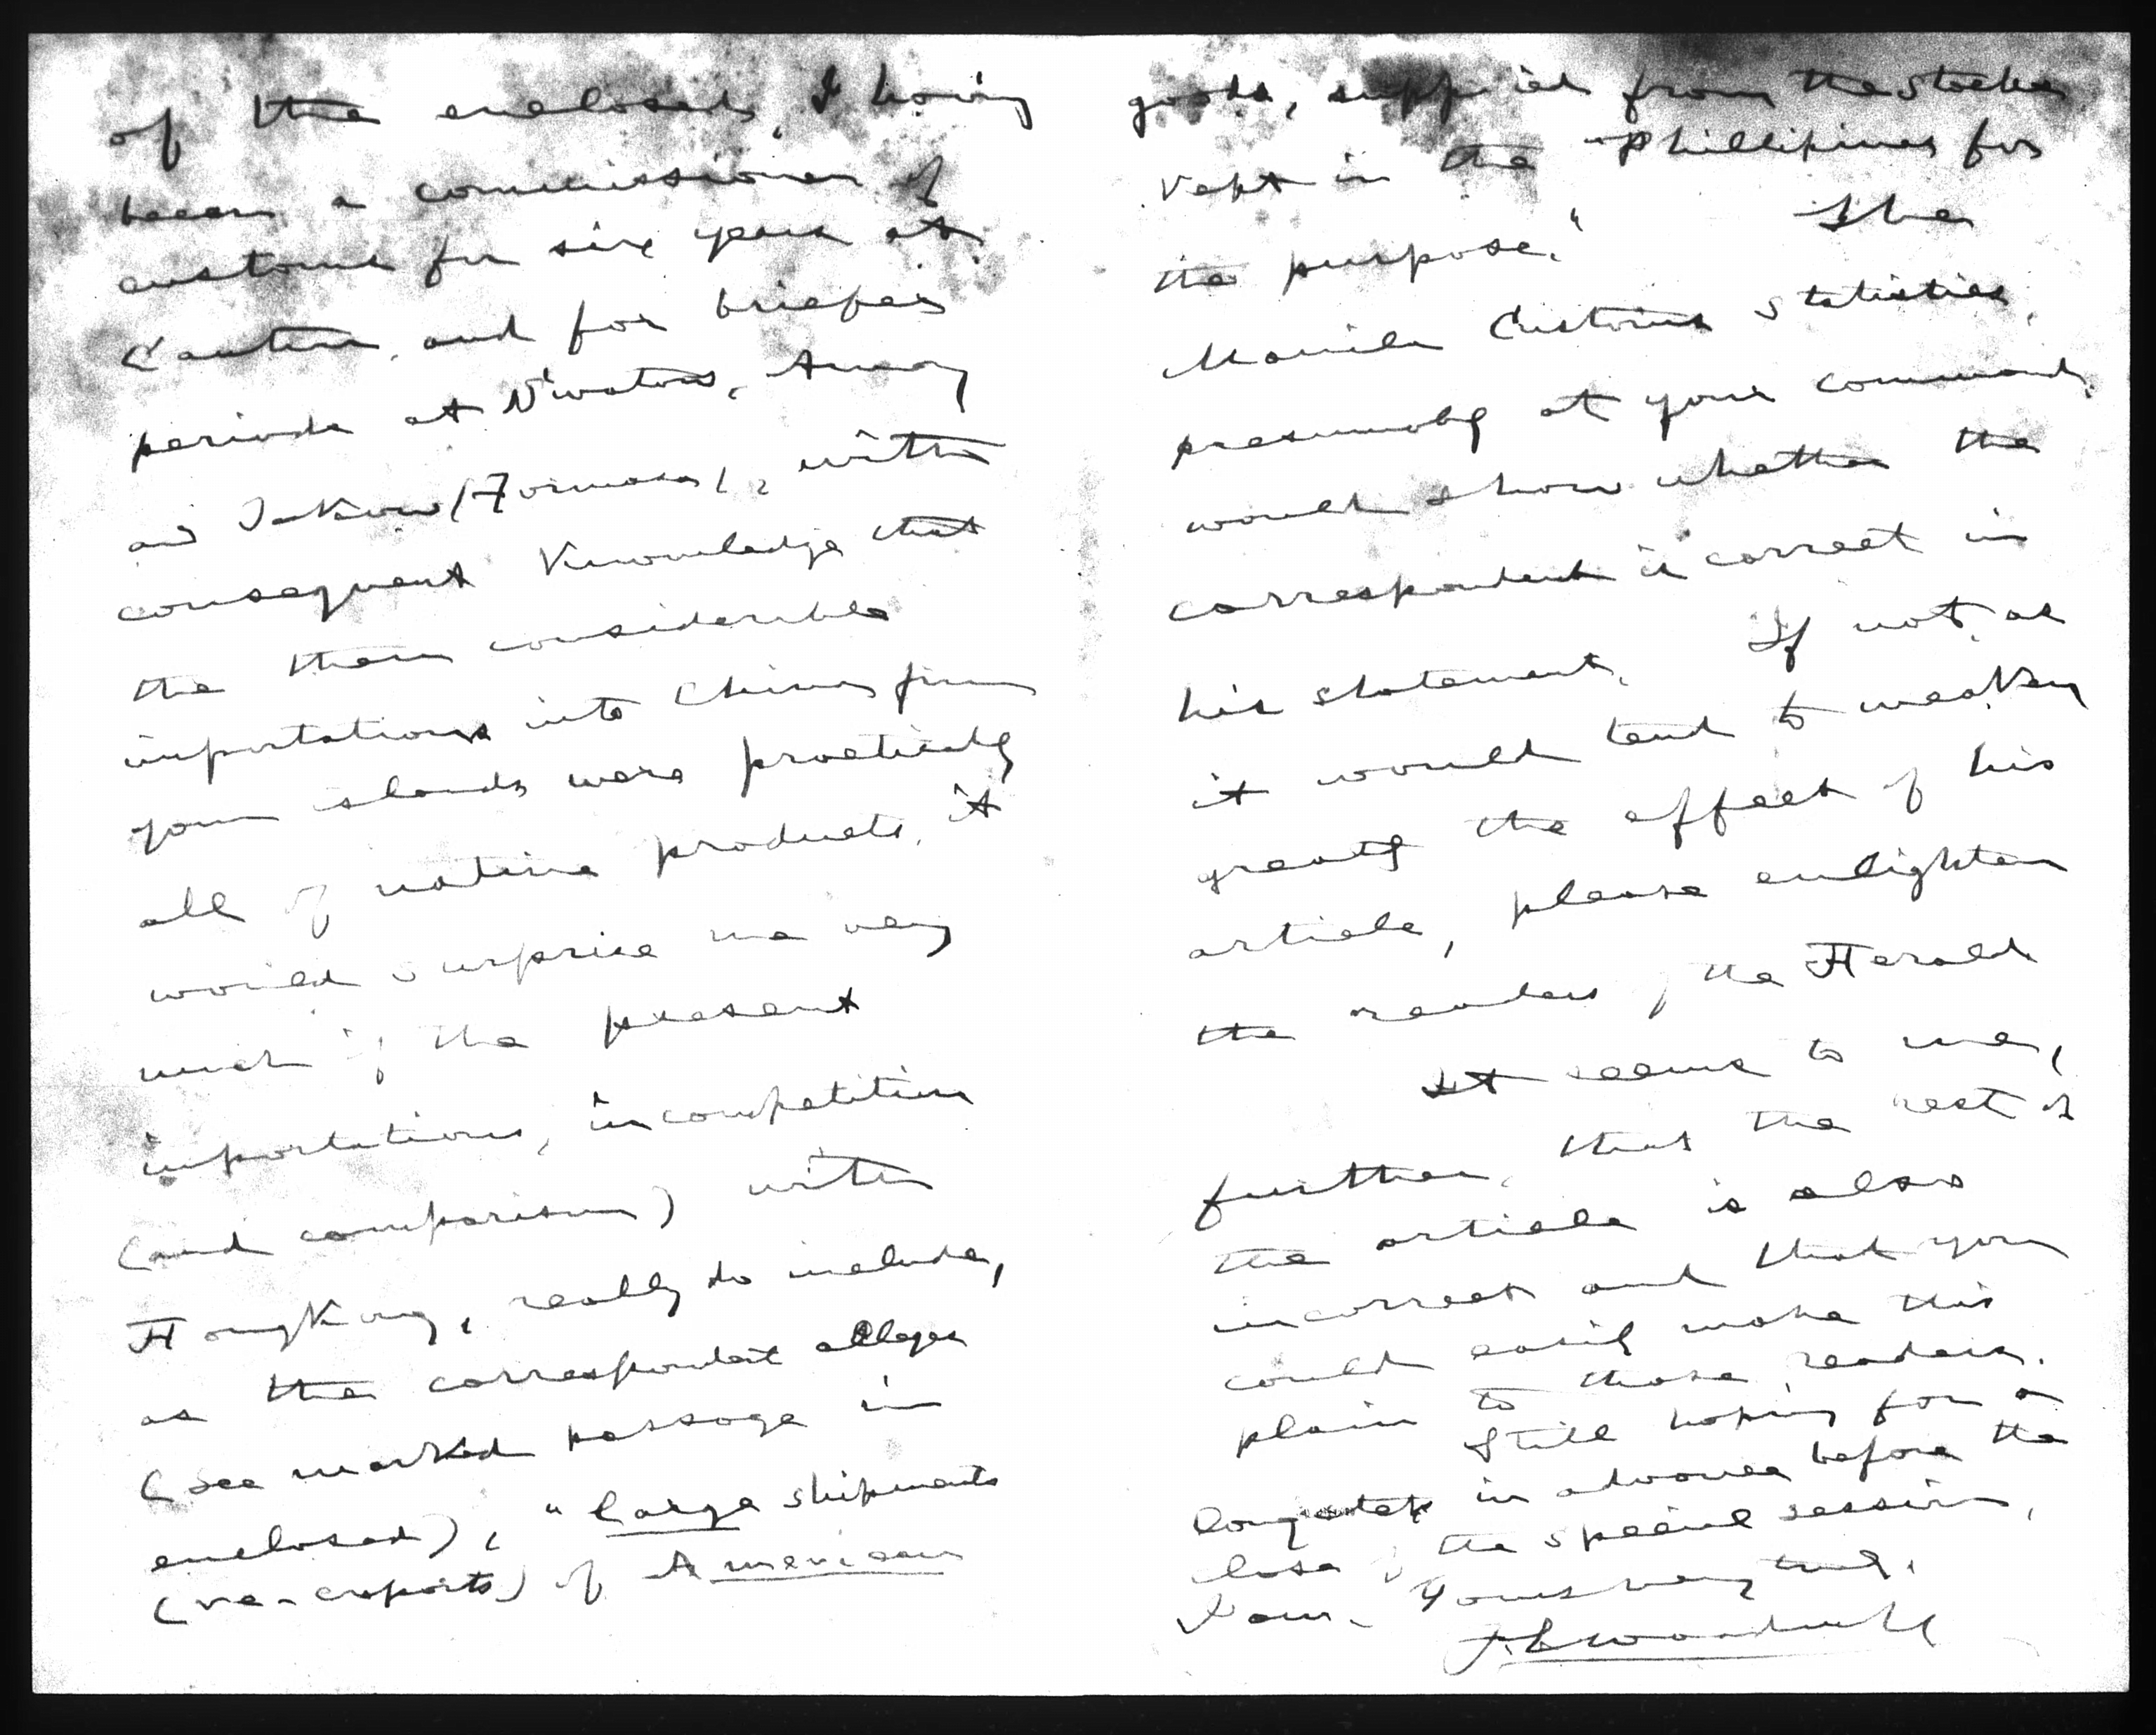 of the enclosed, I having
been a commissioner of
customs for six years at
Canton, and for briefer
periods at Swatow, Amoy
and Takow (Formosa), with
consequent knowledge that
the then considerable
importations into China from
your islands were practically
all of native products, it
would surprise me very
much if the present
importations, in competition
(and comparison) with
HongKong, really do include,
as the correspondent alleges
(see marked passage in
enclosed), "large shipments
(re-exports) of American
goods, supplied from the stocks
kept in the Phillipines for
the purpose." The
Manila Customs statistics,
presumably at your command,
would show whether the
correspondent is correct in
his statement. If not, as
it would tend to weaken
greatly the effect of his
article, please enlighten
the readers of the Herald
It seems to me,
further, that the rest of
the article is also
incorrect and that you
could easily make this
plain to those readers.
Still hoping for a
in advance before the
close of the special session,
I am, Yours very truly,